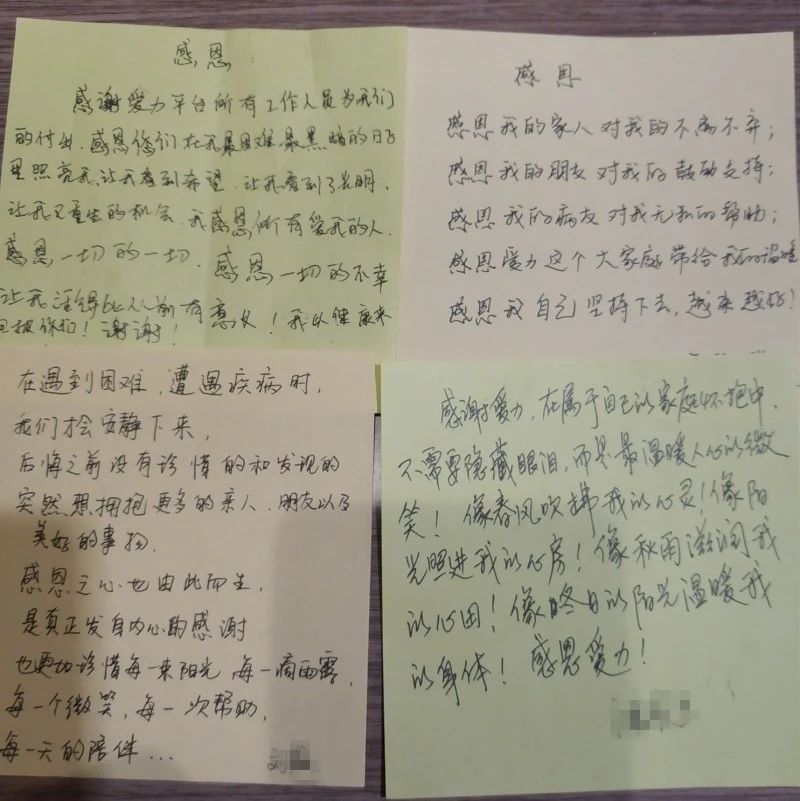 感恩
感谢爱力平台所有工作人员为我们
的付出.感恩您们在我最困难最黑暗的日子
里照亮我让我看到希望.让我看到了光明.
让我又重生的机会.我感恩所有爱我的人.
感恩一切的一切.感恩一切的不幸
让我活得比从前有意义!我以健康来
回报你们!谢谢!
感恩
感恩我的家人对我的不离不弃;
感恩我的朋友对我的鼓励支持;
感恩我的病友对我无私的帮助;
感恩爱力这个大家庭带给我的温暖
感恩我自己坚持下去,越来越好!
在遇到困难,遭遇疾病时,
我们才会安静下来,
后悔之前没有珍惜的和发现的
突然想拥抱更多的亲人.朋友以及
美好的事物.
感恩之心也由此而生,
是真正发自内心的感谢
也更加珍惜每一束阳光,每一滴雨露,
每一个微笑,每一次帮助,
每一天的陪伴...
刘
感谢爱力,在属于自己的家庭怀抱中,
不需要隐藏眼泪,而是最温暖人心的微
笑!像春风吹拂我的心灵!像阳
光照进我的心房!像秋雨滋润我
的心田!像冬日的阳光温暖我
的身体!感恩爱力!